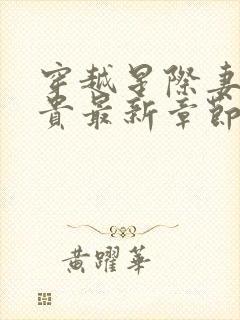 穿越星際妻
貴最新章節
黃躍華